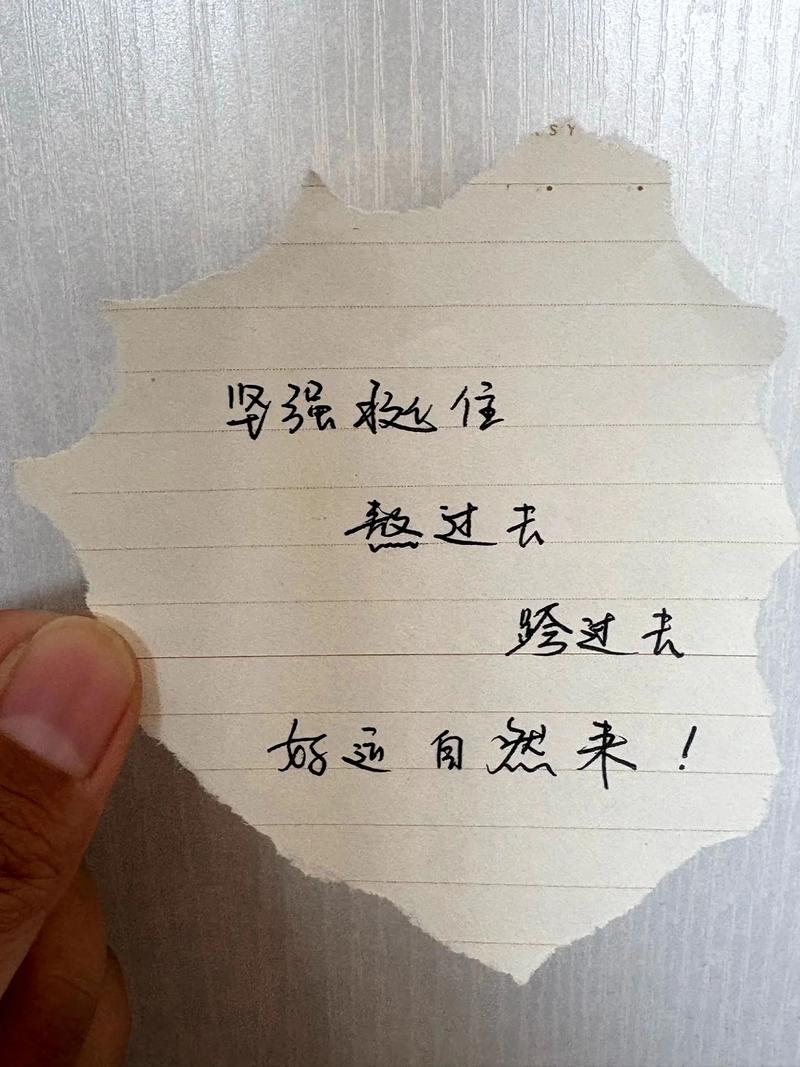 SY
坚强挺住
熬过去
跨过去
好运自然来！